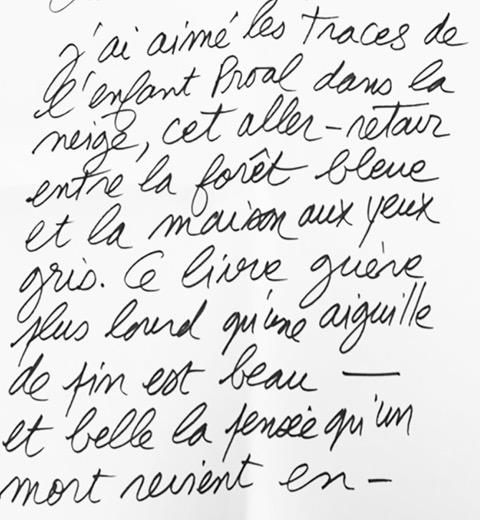 j'ai aimé les traces de
l'enfant Proal dans la
neige, cet aller-retour
entre la forêt bleue
et la maison aux yeux
gris. Ce livre guère
plus lourd qu'une aiguille
de pin est beau —
et belle la pensée qu'un
mort revient en-